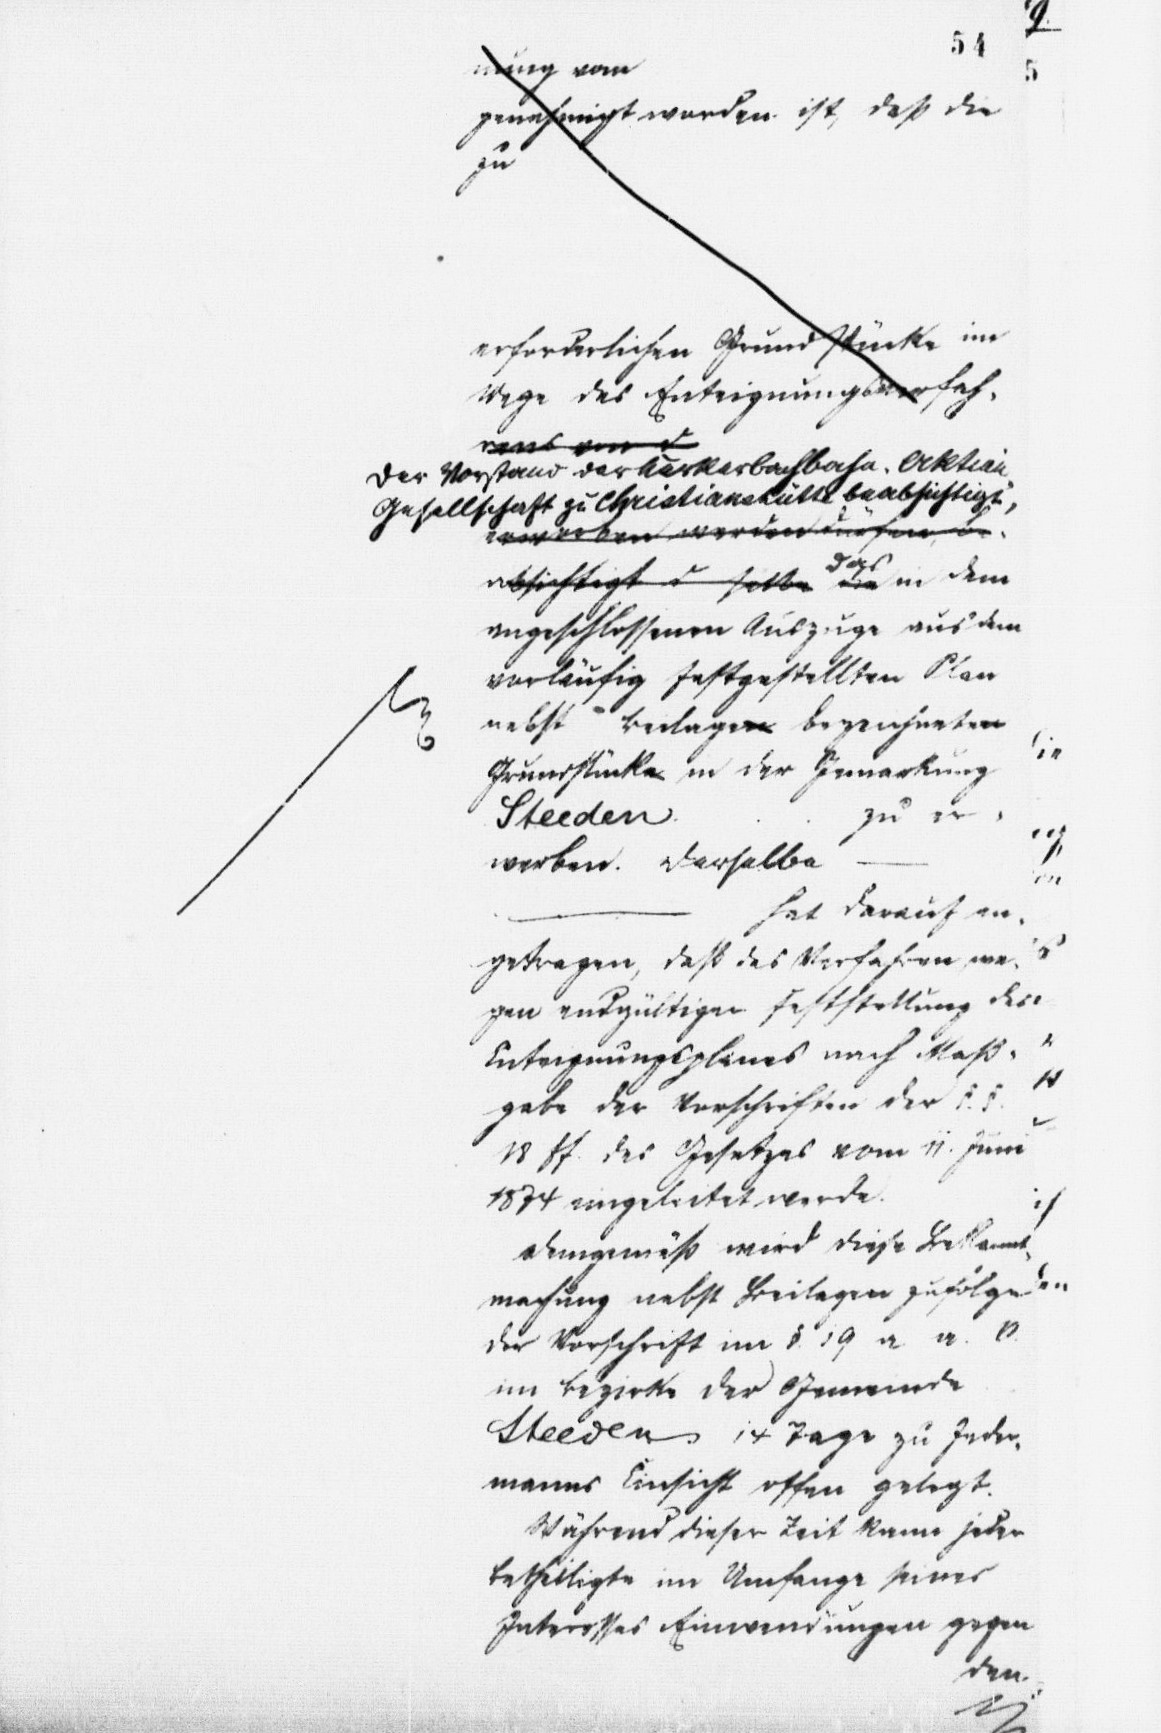 54
5
nung vom
genehmigt worden ist, daß die
zu
erforderlichen Grundstücke im
Wege des Enteignungsverfah-
rens von d
Der Vorstand der Kerkerbachbahn-Aktien
Gesellschaft zu Christianshütte beabsichtigt,
erworben werden dürfen, be-
absichtigt d selbe die das in dem
angeschlossenen Auszuge aus dem
vorläufig festgestellten Plan
nebst Beilagen bezeichneten
Grundstücke in der Gemarkung
Steeden zu er-
werben. Derselbe —
— hat darauf an-
getragen, daß das Verfahren we-
gen endgültiger Feststellung des
Enteignungsplanes nach Maß-
gabe der Vorschriften der §.§.
18 ff. des Gesetzes vom 11. Juni
1874 eingeleitet werde.
Demgemäß wird diese Bekannt-
machung nebst Beilagen zufolge
der Vorschrift im §. 19 a. a. O.
im Bezirke der Gemeinde
Steeden 14 Tage zu Jeder-
manns Einsicht offen gelegt.
Während dieser Zeit kann jeder
Betheiligte im Umfange seines
Interesses Einwendungen gegen
den